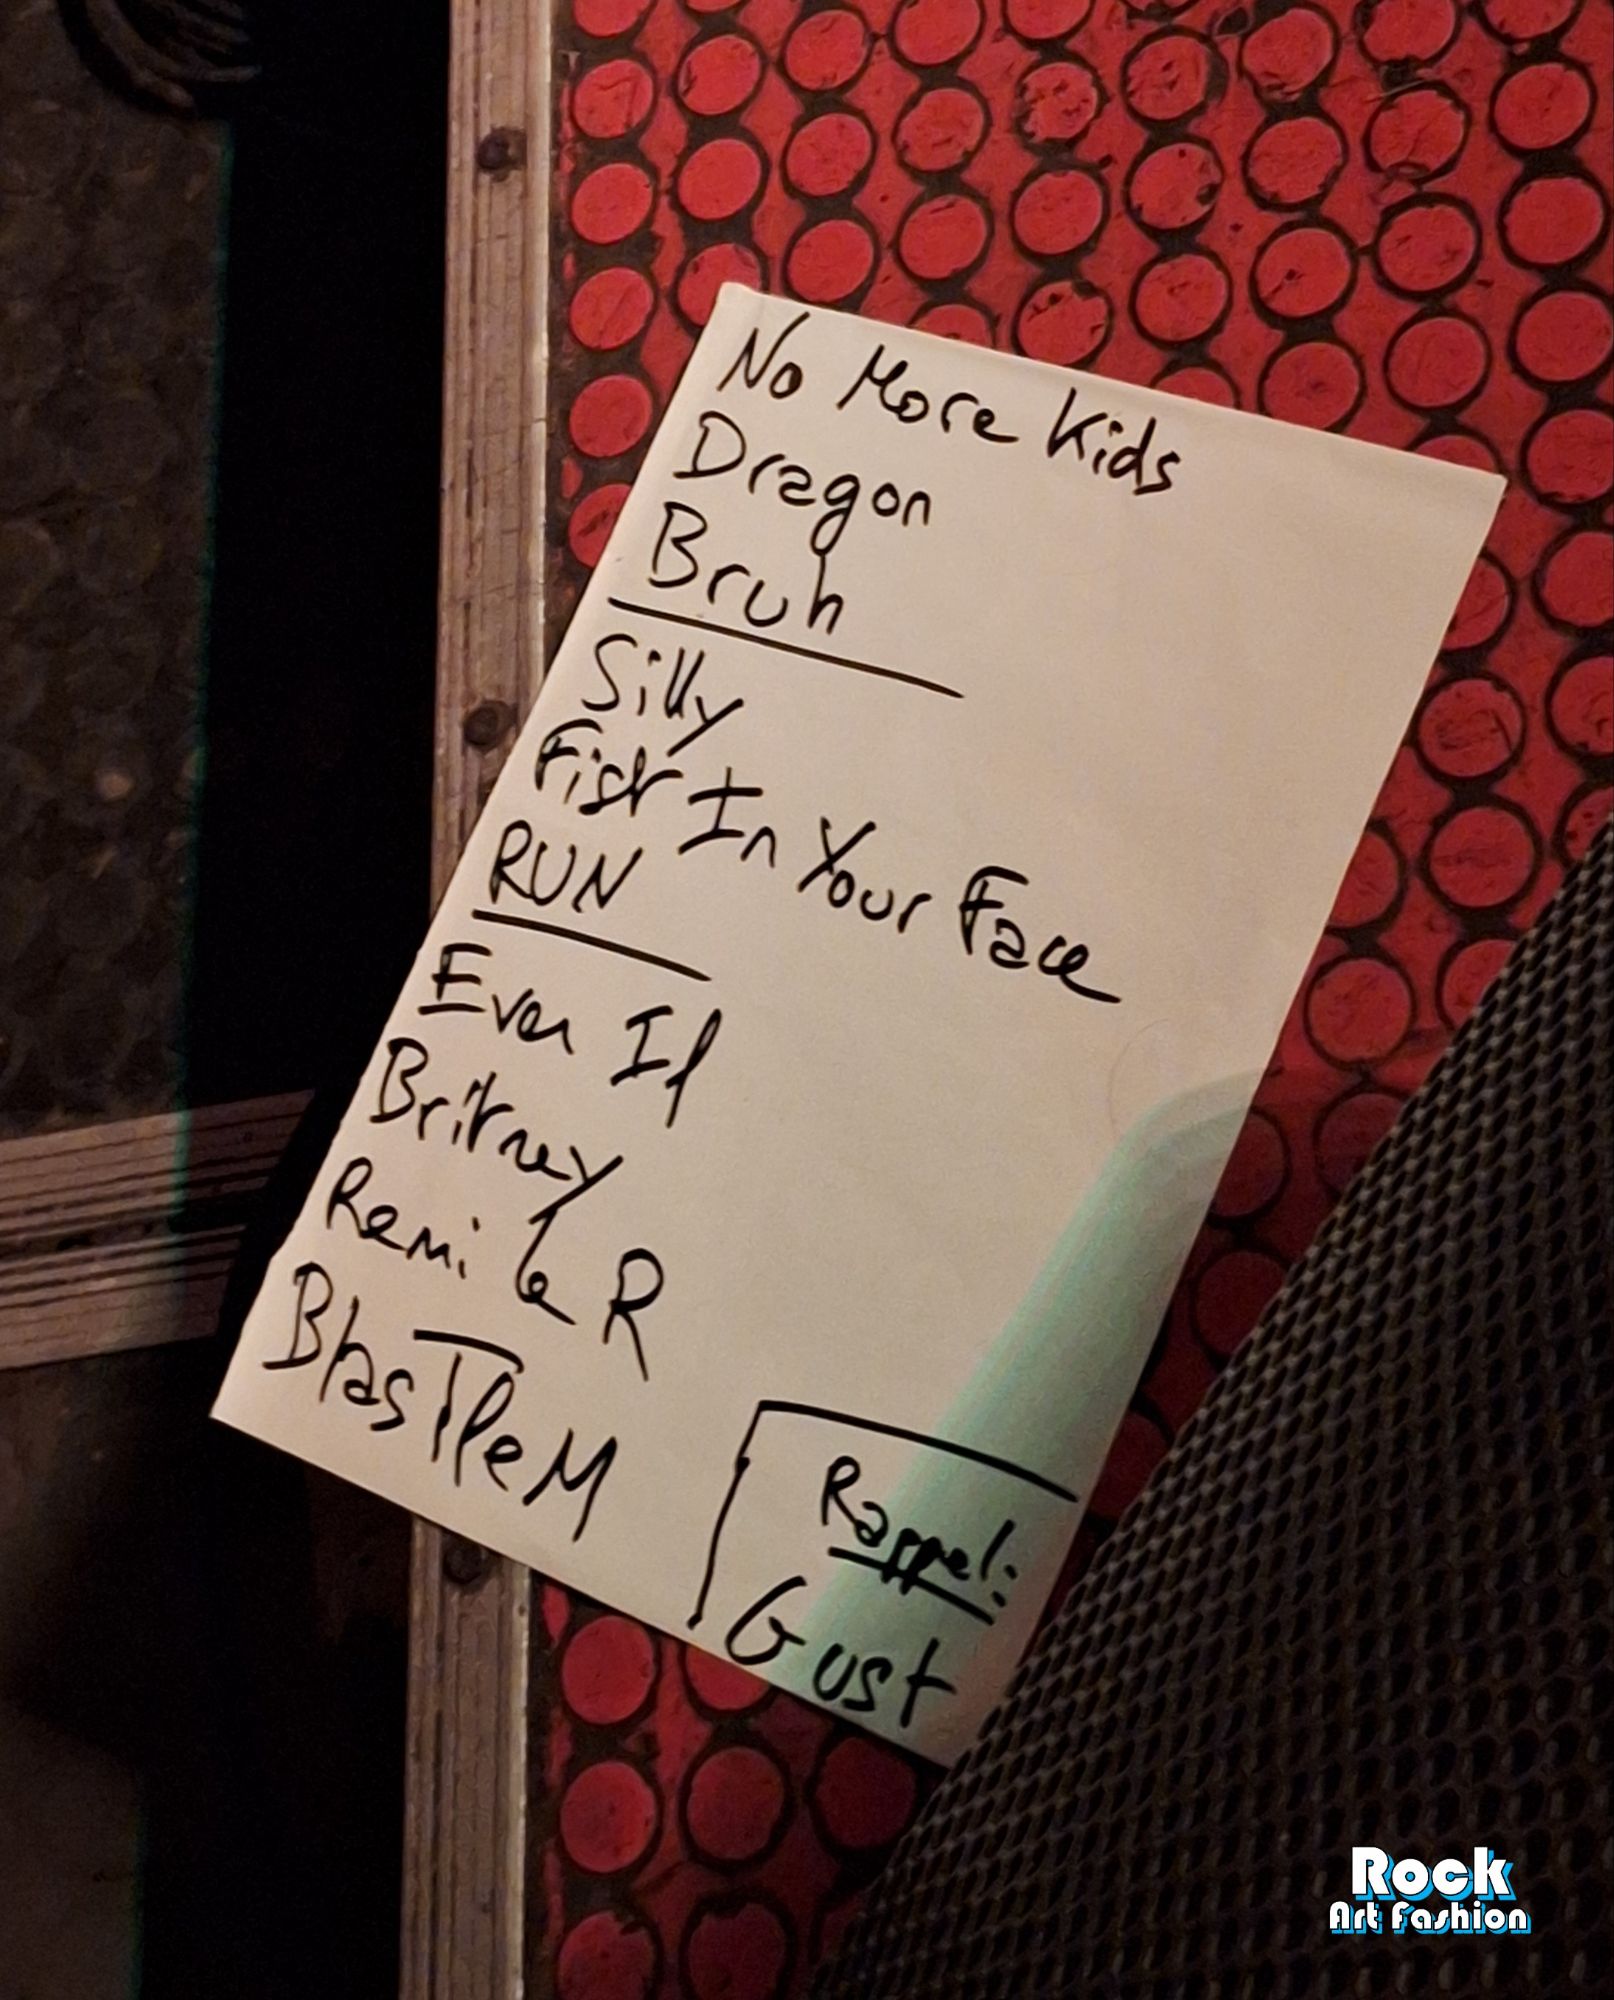 No More Kids
Dragon
Bruh
Silly
Fist In Your Face
RUN
Even If
Britney
Remi le R
BlasTFeM
Rappel:
Gust
Rock
Art Fashion